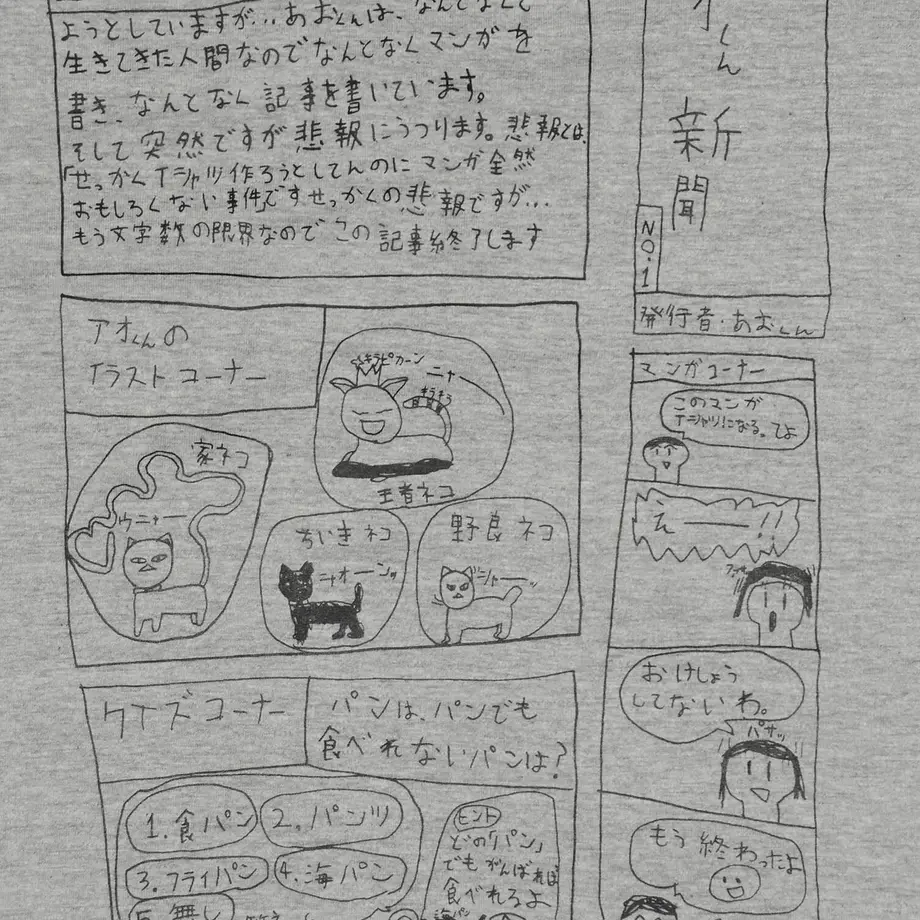 ようとしていますが…あおくんは、なんとなくで
生きてきた人間なのでなんとなくマンガを
書き、なんとなく記事を書いています。
そして突然ですが悲報にうつります。悲報とは、
「せっかくTシャツ作ろうとしてんのにマンガ全然
おもしろくない事件」ですせっかくの悲報ですが…
もう文字数の限界なのでこの記事終了します
オくん
新聞
NO.1
発行者・あおくん
マンガコーナー
このマンガ
Tシャツになる。てよ
え――!!
おけしょう
してないわ。
パサッ
もう終わったよ
アオくんの
イラストコーナー
キラピカーン
ニャー
キラキラ
王者ネコ
家ネコ
ウニャー
ちいきネコ
ニャオーンッ
野良ネコ
シャーッ
クイズコーナー
パンは、パンでも
食べれないパンは?
1.食パン
2.パンツ
3.フライパン
4.海パン
5.無し
ヒント
どの「パン」
でもがんばれば
食べれるよ
海パン